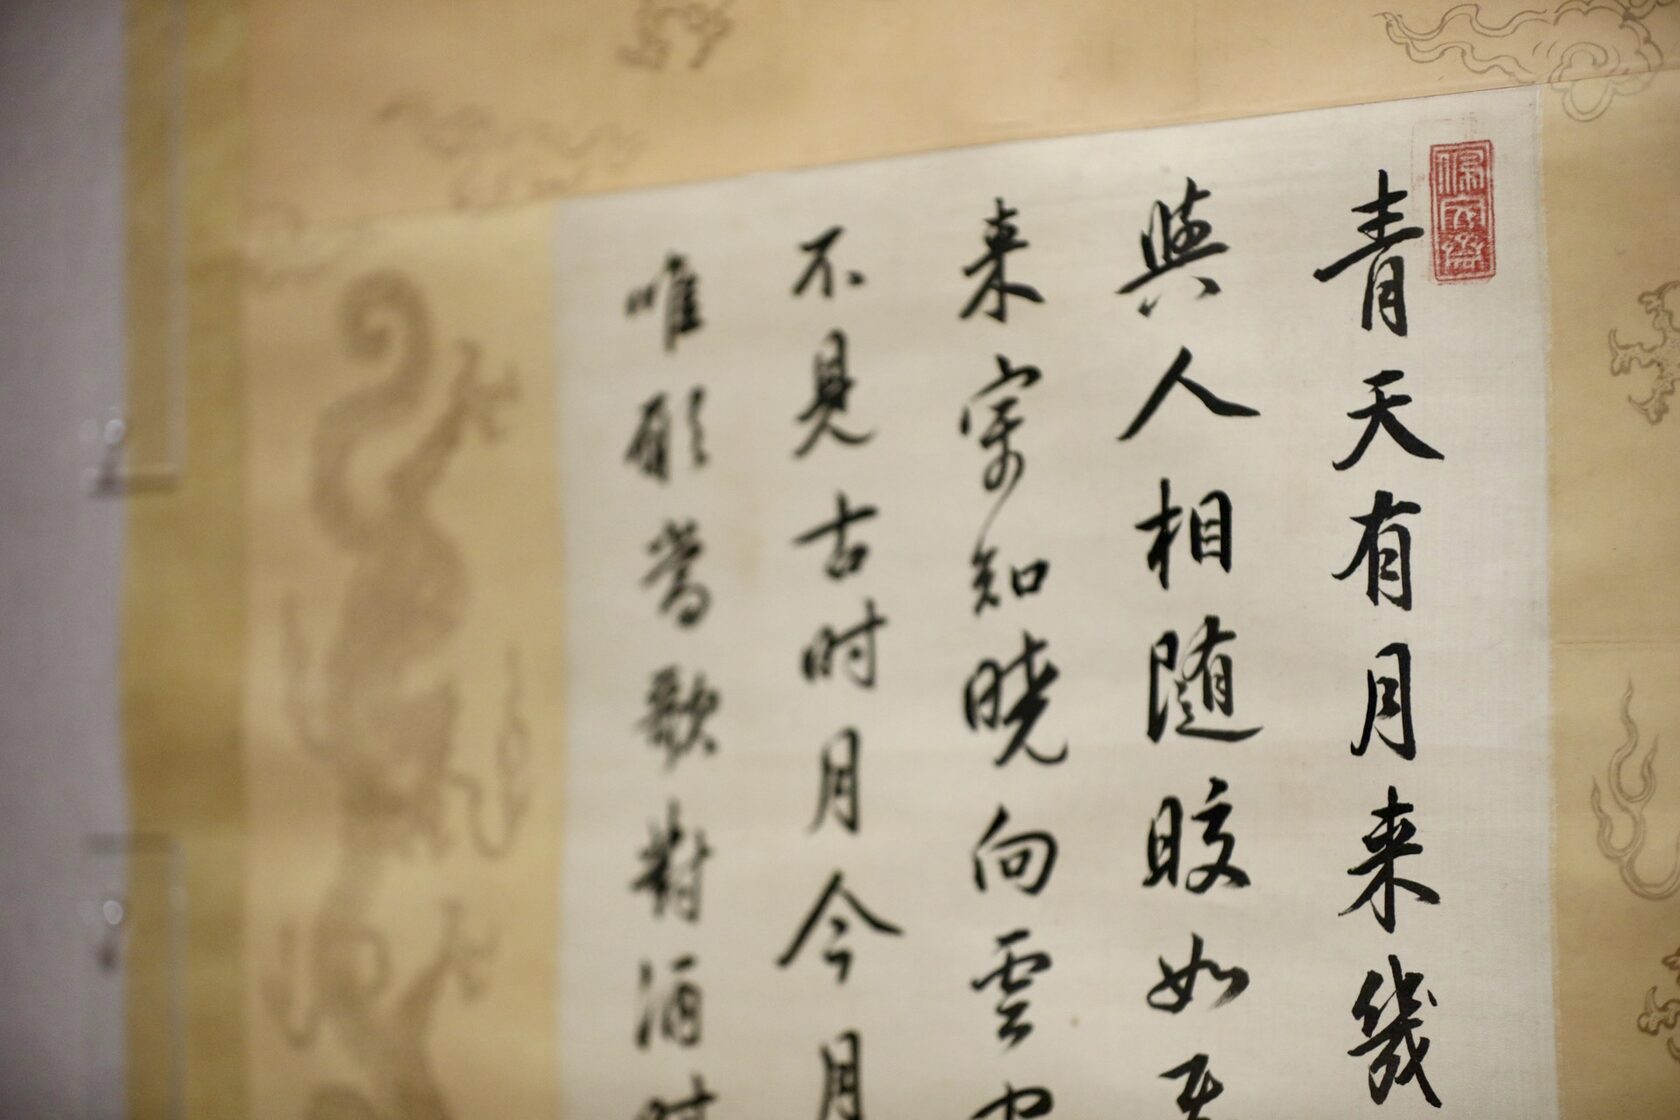 青天有月来幾
與人相随皎如
来寧知晓向雲
不見古时月今月
唯願當歌對酒时